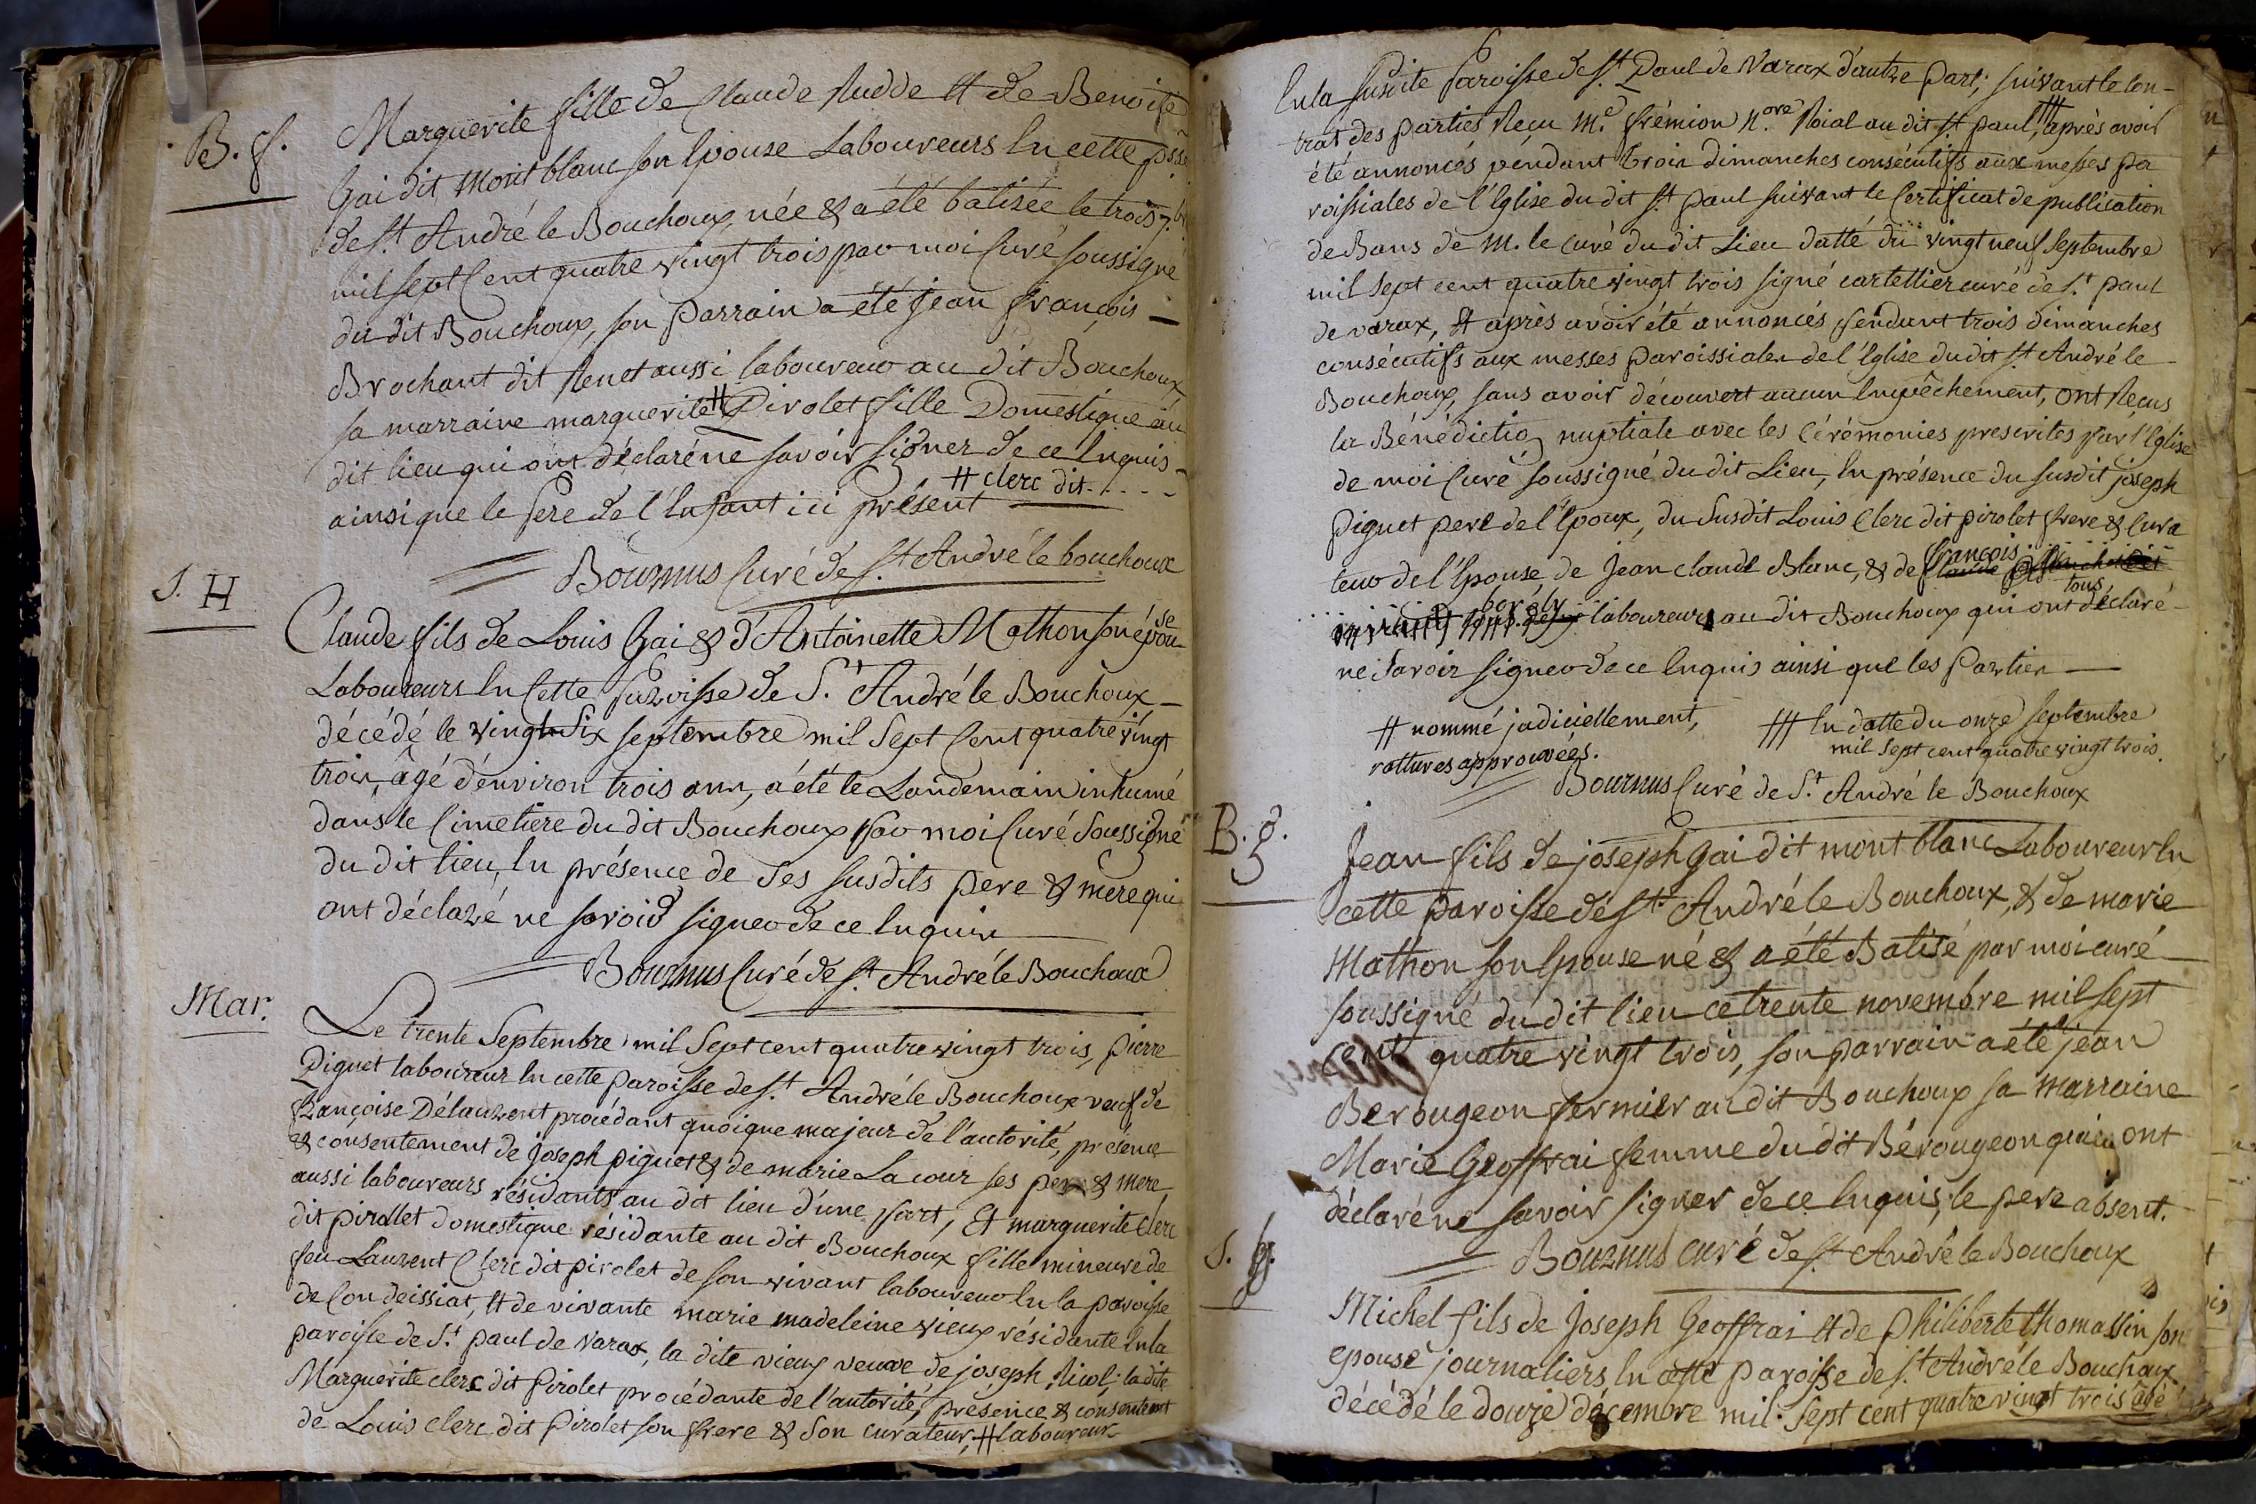 B. f.
Marguerite fille de Claude Rudde Et de Benoite
Gai dit Montblanc son Epouse Laboureurs En cette psse
de St André le Bouchoux, née & a été batisée le trois 7.bre
mil sept Cent quatre vingt trois par moi Curé soussigné
du dit Bouchoux, son Parrain a été Jean François —
Brochant dit Renet aussi laboureur au dit Bouchoux
sa marraine marguerite # Pirolet fille Domestique au
dit lieu qui ont déclaré ne savoir signer de ce Enquis -
ainsi que le Pere de l'Enfant ici présent # clerc dit. . . . .
Bournus Curé de St André le bouchoux
S. H
Claude fils de Louis Gai & d'Antoinette Mathon son épouse
Laboureurs En Cette Paroisse de St André le Bouchoux —
décédé le vingt Six septembre mil Sept Cent quatre vingt
trois, âgé d'environ trois ans, a été le Landemain inhumé
dans le Cimetiere du dit Bouchoux par moi Curé Soussigné
du dit lieu, En présence de Ses susdits pere & mere qui
ont déclaré ne savoir signer de ce Enquis
Bournus Curé de St André le Bouchoux
Mar.
Le trente Septembre mil Sept cent quatre vingt trois, pierre
Piguet laboureur En cette paroisse de St André le Bouchoux veuf de
françoise Délaurent procédant quoique majeur de l'autorité, présence
& consentement de Joseph piguet & de marie Lacour ses pere & mere
aussi laboureurs résidants au dit lieu d'une part, Et marguerite Clerc
dit pirollet domestique résidante au dit Bouchoux fille mineure de
feu Laurent Clerc dit pirolet de son vivant laboureur En la paroisse
de Condeissiat, Et de vivante marie madeleine vieux résidante En la
paroisse de St paul de Varax, la dite vieux veuve de joseph Nicol; la dite
Marguerite clerc dit Pirolet procédante de l'autorité, présence & consentement
de Louis clerc dit Pirolet son frere & Son curateur, # laboureur
6
En la susdite Paroisse de St Paul de Varax d'autre Part; suivant le Con-
trat des parties Reçu Me. frémion N.ore Roial au dit St paul, ### après avoir
été annoncés péndant trois dimanches consécutifs aux messes pa
roissiales de l'Eglise du dit St paul suivant le Certificat de publication
de Bans de M. le Curé du dit Lieu datté du vingt neuf Septembre
mil Sept cent quatre vingt trois signé cartellier curé de St paul
de varax, Et après avoir été annoncés pendant trois dimanches
consécutifs aux messes paroissiales de l'Eglise du dit St André le -
Bouchoux, sans avoir découvert aucun Empêchement, ont Reçus
la Bénédiction nuptiale avec les Cérémonies prescrites par l'Eglise
de moi Curé soussigné du dit Lieu, En présence du susdit joseph
Piguet pere de l'Epoux, du Susdit Louis Clerc dit pirolet frere & Cura
teur de l'Epouse, de Jean claude Blanc, & de françois
laboureurs au dit Bouchoux qui ont tous déclaré -
ne Savoir signer de ce Enquis ainsi que les Parties —
# nommé judiciellement,
rattures approuvées.
### En datte du onze septembre
mil Sept cent quatre vingt trois.
Bournus Curé de St André le Bouchoux
B. g.
Jean fils de joseph Gai dit mont blanc Laboureur En
cette paroisse de St André le Bouchoux, & de marie
Mathon son Epouse né & a été Batisé par moi curé
soussigné du dit lieu ce trente novembre mil sept
cent quatre vingt trois, son parrain a été jean
Berougeon fermier au dit Bouchoux sa marraine
Marie Geoffrai femme du dit Bérougeon qui ont
déclaré ne savoir signer de ce Enquis, le pere absent.
Bournus curé de St André le Bouchoux
S. g.
Michel fils de Joseph Geoffrai Et de Philiberte thomassin son
epouse journaliers En cette paroisse de St André le Bouchoux
décédé le douze décembre mil Sept cent quatre vingt trois âgé